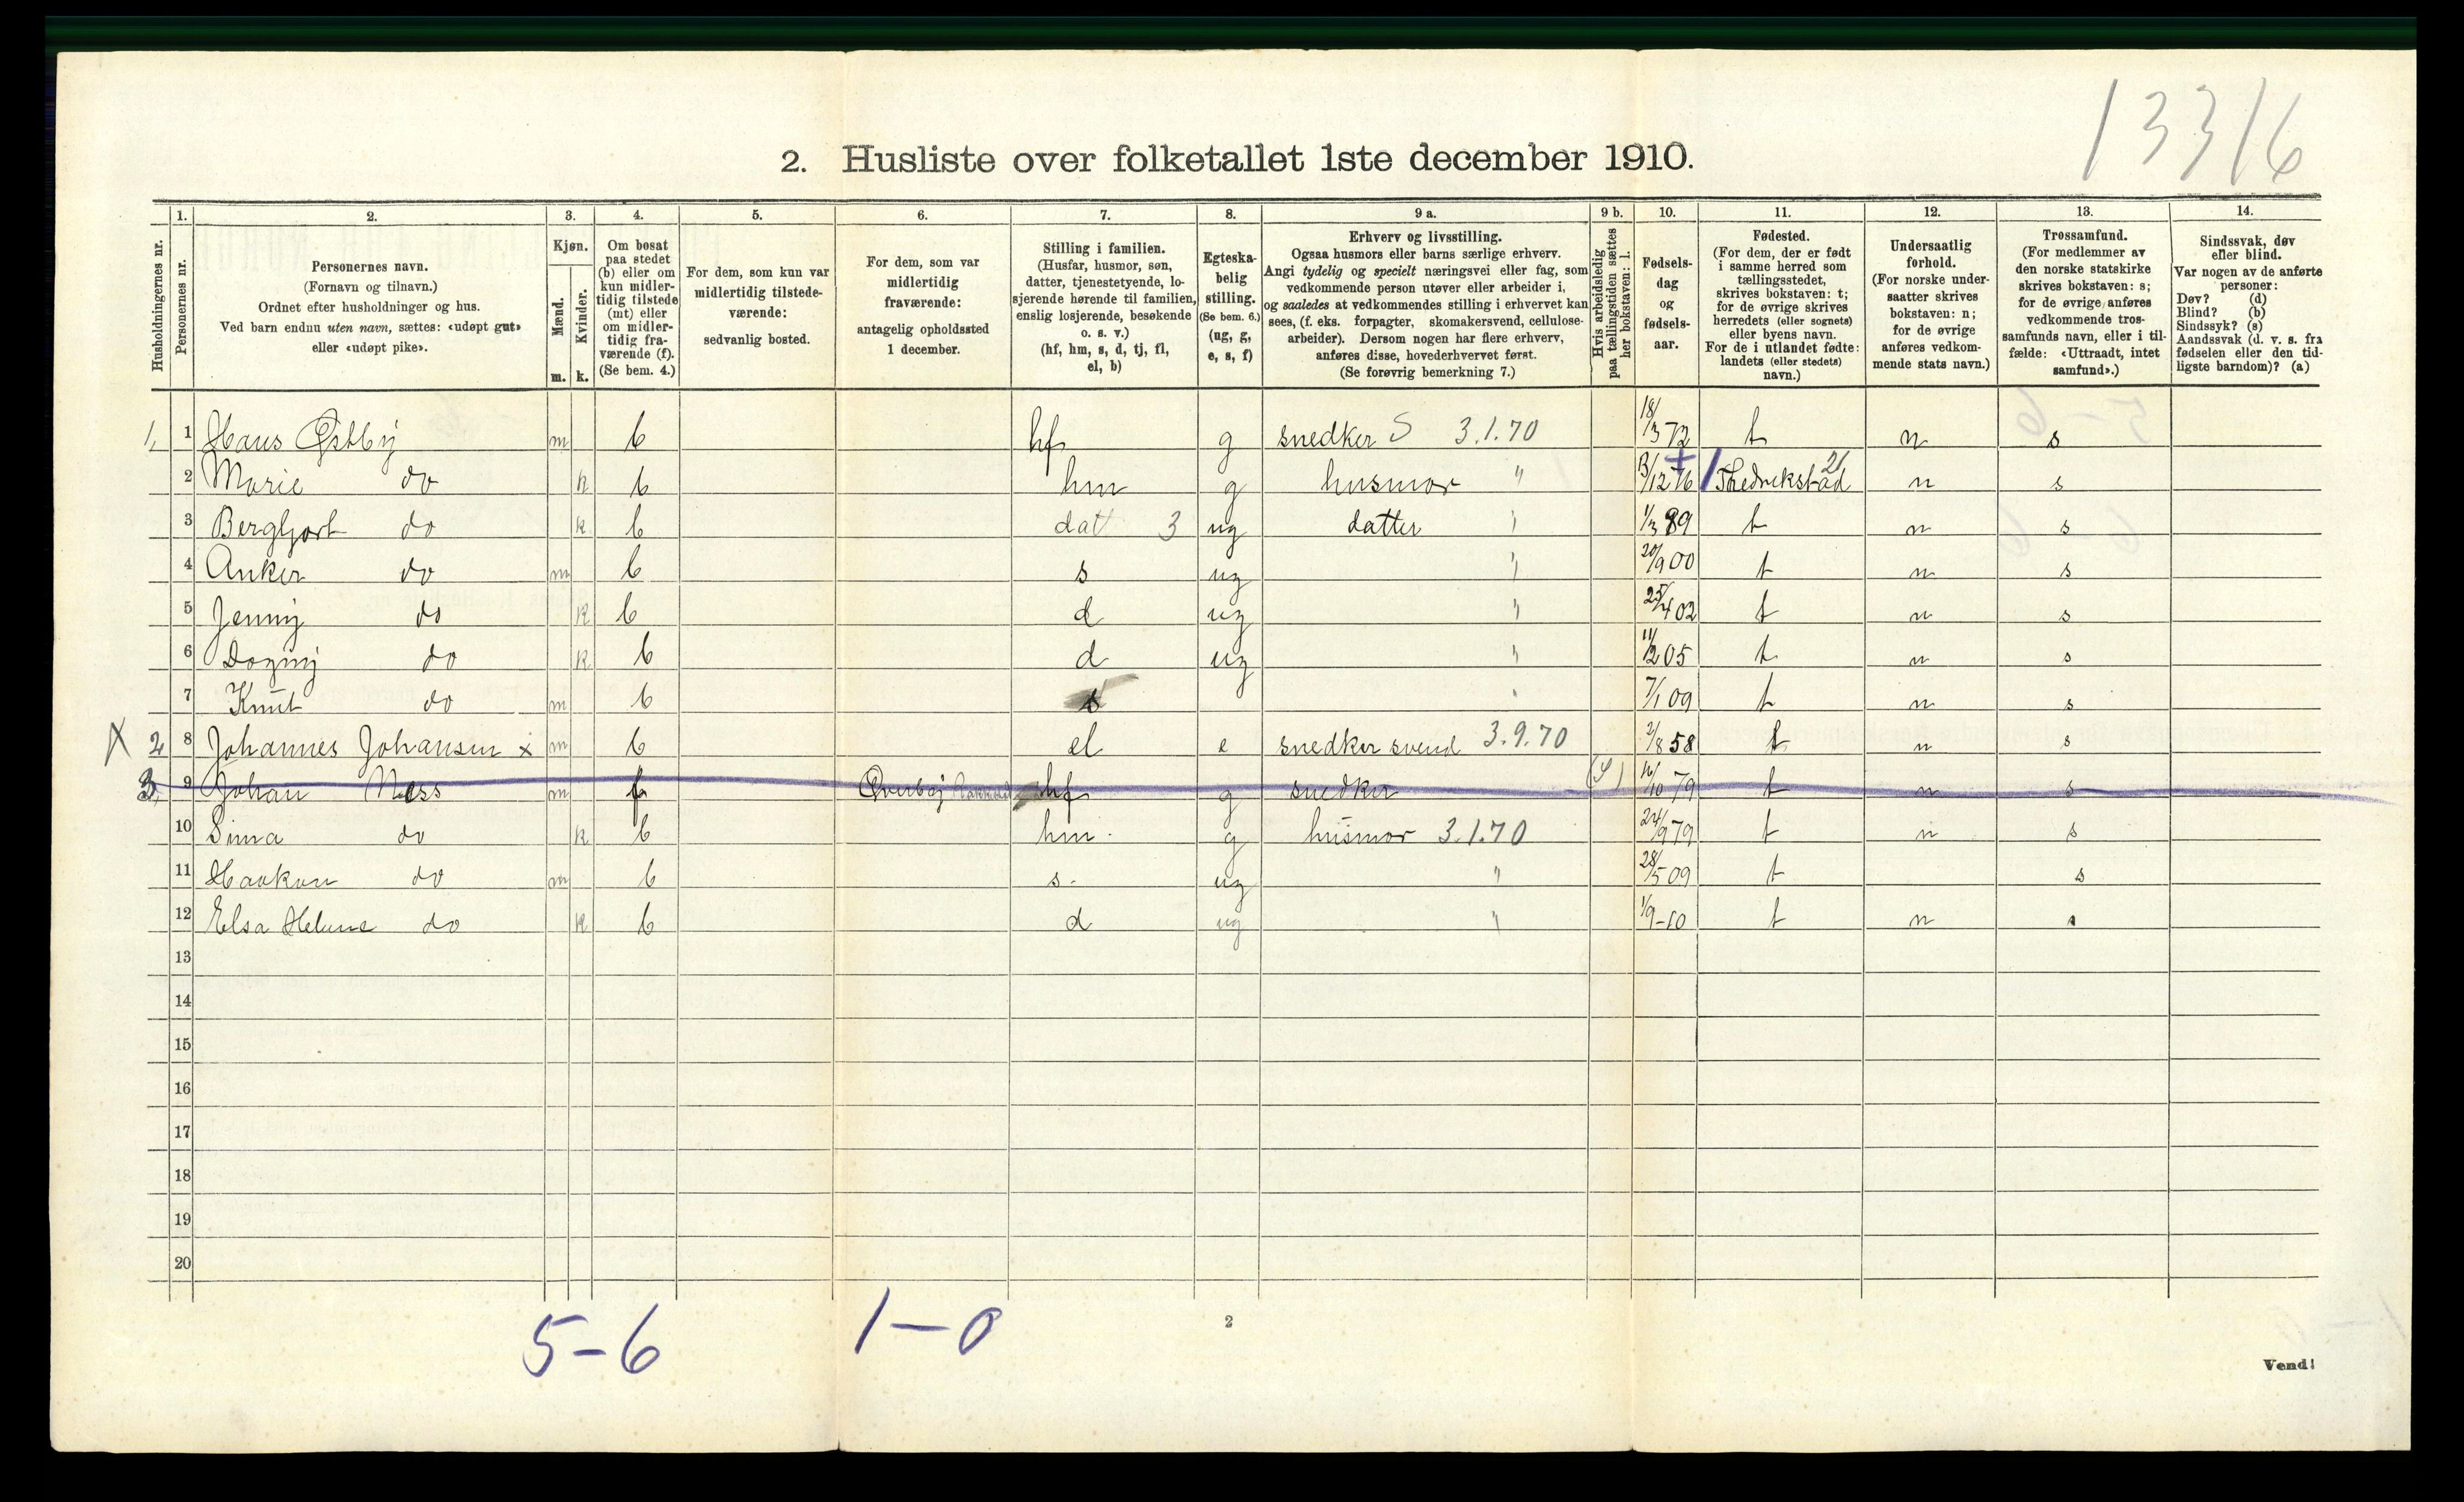 13316
2. Husliste over folketallet 1ste december 1910.
1. 2. 3. 4. 5. 6. 7. 8. 9 a. 9 b. 10. 11. 12. 13. 14.
Husholdningernes nr.
Personernes nr.
Personernes navn.
(Fornavn og tilnavn.)
Ordnet efter husholdninger og hus.
Ved barn endnu uten navn, sættes: «udøpt gut»
eller «udøpt pike».
Kjøn.
Mænd.
Kvinder.
m. k.
Om bosat
paa stedet
(b) eller om
kun midler-
tidig tilstede
(mt) eller
om midler-
tidig fra-
værende (f).
(Se bem. 4.)
For dem, som kun var
midlertidig tilstede-
værende:
sedvanlig bosted.
For dem, som var
midlertidig
fraværende:
antagelig opholdssted
1 december.
Stilling i familien.
(Husfar, husmor, søn,
datter, tjenestetyende, lo-
sjerende hørende til familien,
enslig losjerende, besøkende
o. s. v.)
(hf, hm, s, d, tj, fl,
el, b)
Egteska-
belig
stilling.
(Se bem. 6.)
(ug, g,
e, s, f)
Erhverv og livsstilling.
Ogsaa husmors eller barns særlige erhverv.
Angi tydelig og specielt næringsvei eller fag, som
vedkommende person utøver eller arbeider i,
og saaledes at vedkommendes stilling i erhvervet kan
sees, (f. eks. forpagter, skomakersvend, cellulose-
arbeider). Dersom nogen har flere erhverv,
anføres disse, hovederhvervet først.
(Se forøvrig bemerkning 7.)
Hvis arbeidsledig
paa tællingstiden sættes
her bokstaven: l.
Fødsels-
dag
og
fødsels-
aar.
Fødested.
(For dem, der er født
i samme herred som
tællingsstedet,
skrives bokstaven: t;
for de øvrige skrives
herredets (eller sognets)
eller byens navn.
For de i utlandet fødte:
landets (eller stedets)
navn.)
Undersaatlig
forhold.
(For norske under-
saatter skrives
bokstaven: n;
for de øvrige
anføres vedkom-
mende stats navn.)
Trossamfund.
(For medlemmer av
den norske statskirke
skrives bokstaven: s;
for de øvrige anføres
vedkommende tros-
samfunds navn, eller i til-
fælde: «Uttraadt, intet
samfund».)
Sindssvak, døv
eller blind.
Var nogen av de anførte
personer:
Døv? (d)
Blind? (b)
Sindssyk? (s)
Aandssvak (d. v. s. fra
fødselen eller den tid-
ligste barndom)? (a)
1, 1 Hans Østby m b hf g snedker S 3.1.70 18/3 72 t n s
2 Marie do k b hm g husmor " 13/12 76 Fredrikstad 21 n s
3 Bergljot do k b datt 3 ug datter " 1/3 89 t n s
4 Anker do m b s ug " 20/9 00 t n s
5 Jenny do k b d ug " 25/4 02 t n s
6 Dagny do k b d ug " 11/2 05 t n s
7 Knut do m b s " 7/1 09 t n s
X 2, 8 Johannes Johansen x m b el e snedker svend 3.9.70 2/8 58 t n s
3, 9 Johan Ness m f hf g snedker 16/10 79 t n s
10 Sina do k b hm. g husmor 3.1.70 24/9 79 t n s
11 Haakon do m b s. ug " 28/5 09 t s
12 Elsa Helene do k b d ug " 1/9-10 t n s
13
14
15
16
17
18
19
20
5-6 1-0
2
Vend!